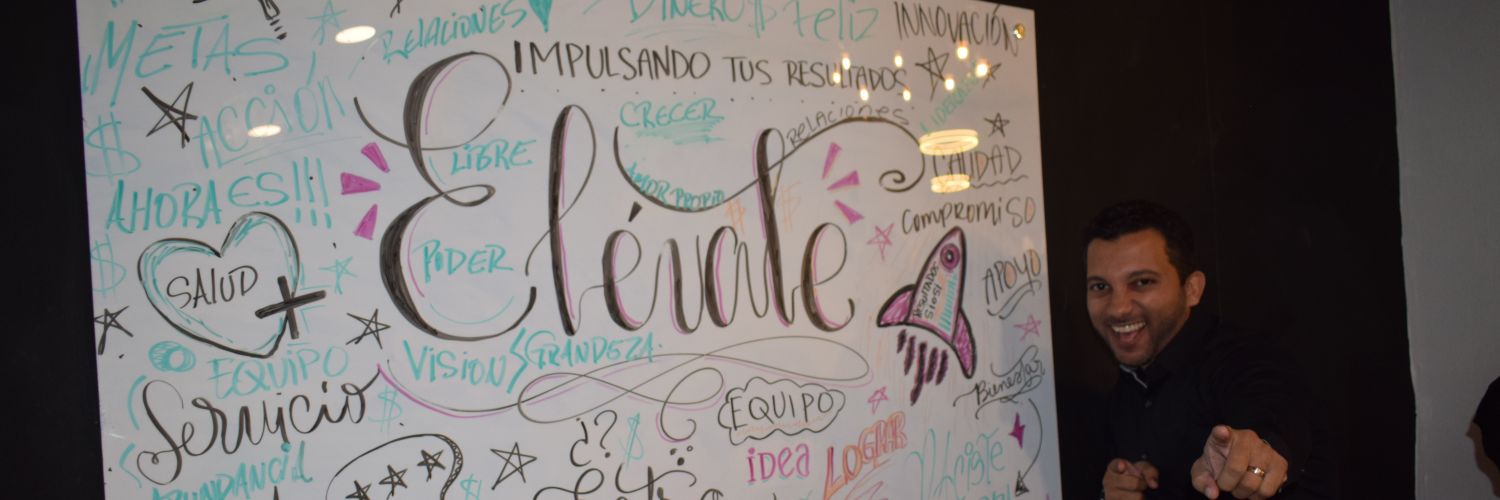 RELACIONES DINERO $ Feliz INNOVACIÓN
METAS
IMPULSANDO TUS RESULTADOS
ACCIÓN
CRECER
RELACIONES
LIBRE
CALIDAD
AHORA ES!!!
AMOR PROPIO
COMPROMISO
Elévate
SALUD +
PODER
RESULTADOS
SIOSI
APOYO
EQUIPO
VISION
GRANDEZA
Servicio
Bienestar
EQUIPO
¿?
idea
LOGRAR